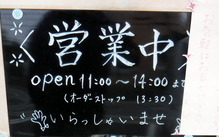 営業中
open 11:00～14:00まで
(オーダーストップ 13:30)
いらっしゃいませ